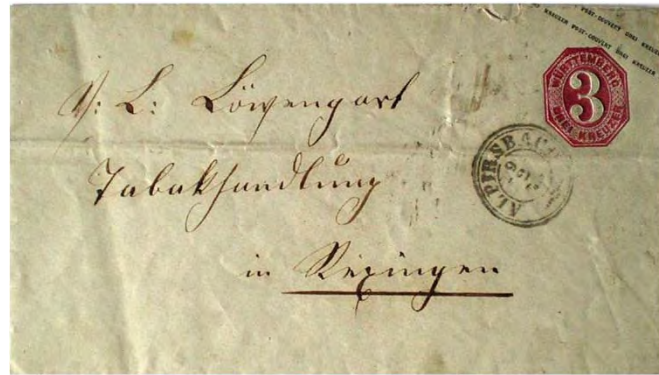 POST-COUVERT DREI KREUZER
KREUZER POST-COUVERT DREI KREUZER
WÜRTTEMBERG
3
DREI KREUZER
ALPIRSBACH
L: Löwengart
Tabakhandlung
in Rexingen